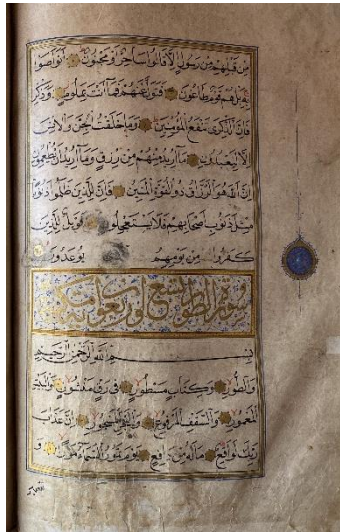 مِنْ قَبْلِهِمْ مِنْ رَسُولٍ إِلَّا قَالُوا سَاحِرٌ أَوْ مَجْنُونٌ أَتَوَاصَوْا
بِهِ بَلْ هُمْ قَوْمٌ طَاغُونَ فَتَوَلَّ عَنْهُمْ فَمَا أَنْتَ بِمَلُومٍ وَذَكِّرْ
فَإِنَّ الذِّكْرَى تَنْفَعُ الْمُؤْمِنِينَ وَمَا خَلَقْتُ الْجِنَّ وَالْإِنْسَ
إِلَّا لِيَعْبُدُونِ مَا أُرِيدُ مِنْهُمْ مِنْ رِزْقٍ وَمَا أُرِيدُ أَنْ يُطْعِمُونِ
إِنَّ اللَّهَ هُوَ الرَّزَّاقُ ذُو الْقُوَّةِ الْمَتِينُ فَإِنَّ لِلَّذِينَ ظَلَمُوا ذَنُوبًا
مِثْلَ ذَنُوبِ أَصْحَابِهِمْ فَلَا يَسْتَعْجِلُونِ فَوَيْلٌ لِلَّذِينَ
كَفَرُوا مِنْ يَوْمِهِمُ يُوعَدُونَ
سورة الطور تسع واربعون آية
بِسْمِ اللَّهِ الرَّحْمَنِ الرَّحِيمِ
وَالطُّورِ وَكِتَابٍ مَسْطُورٍ فِي رَقٍّ مَنْشُورٍ وَالْبَيْتِ
الْمَعْمُورِ وَالسَّقْفِ الْمَرْفُوعِ وَالْبَحْرِ الْمَسْجُورِ إِنَّ عَذَابَ
رَبِّكَ لَوَاقِعٌ مَا لَهُ مِنْ دَافِعٍ يَوْمَ تَمُورُ السَّمَاءُ مَوْرًا وَ